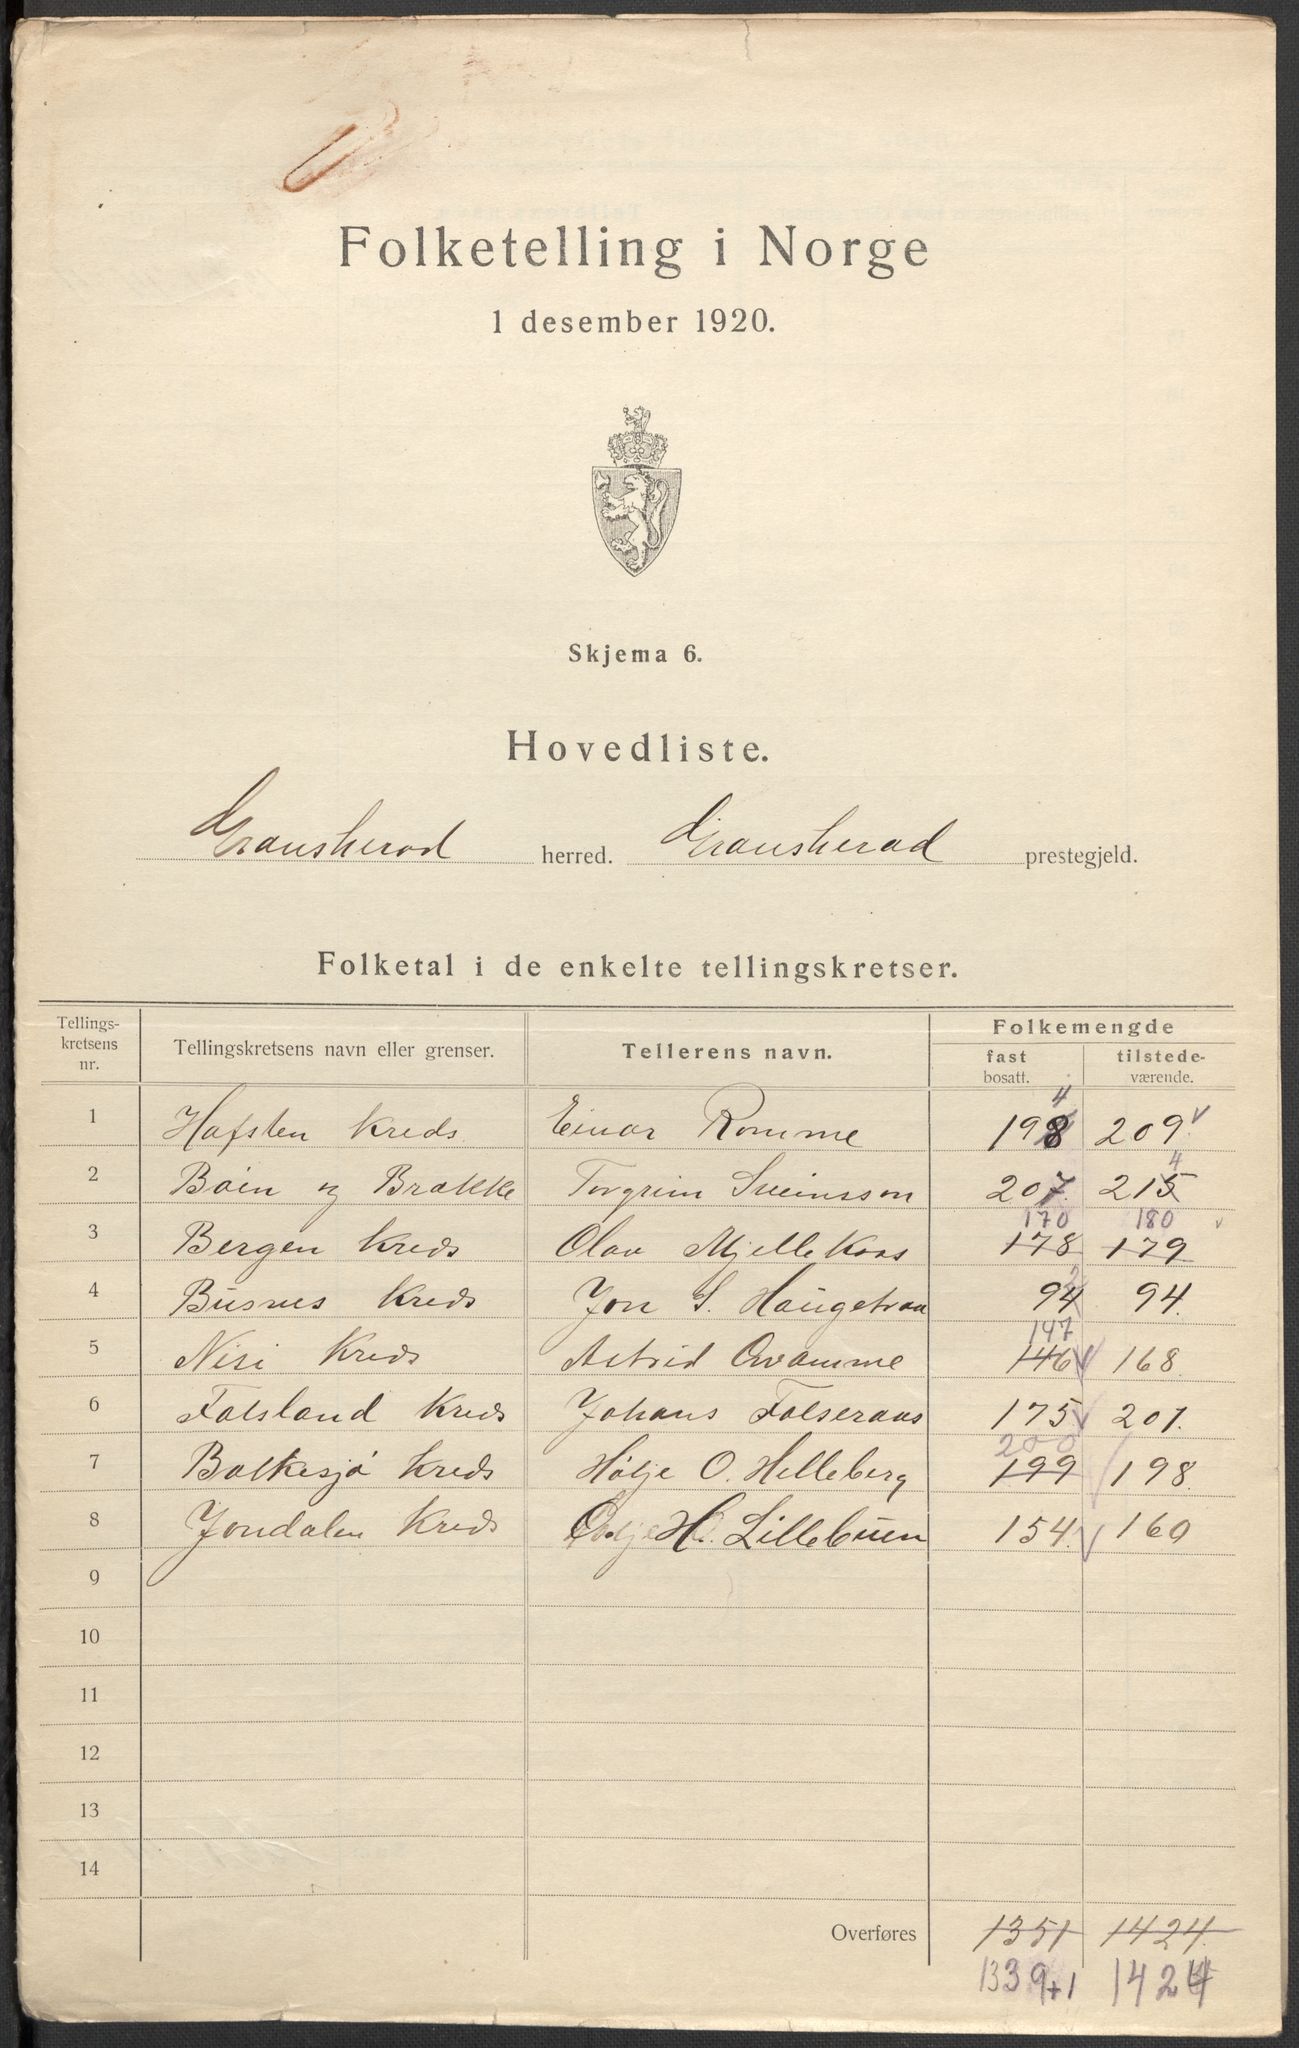 Folketelling i Norge
1 desember 1920.
Skjema 6.
Hovedliste.
Gransherad herred. Gransherad prestegjeld.
Folketal i de enkelte tellingskretser.
Tellingskretsens nr. Tellingskretsens navn eller grenser. Tellerens navn. Folkemengde
fast bosatt. tilstedeværende.
1 Hafsten Kreds. Einar Romme 198 4 209
2 Bøen og Brække Torgrim Sveinsson 207. 215 4
3 Bergen Kreds Olav Mjellekaas 178 170 179 180
4 Busnes Kreds Jon S. Haugetraa 94 2 94.
5 Nisi Kreds Astrid Qvamme 146 147 168
6 Folsland Kreds Johans Folseraas 175 201.
7 Bolkesjø Kreds Hølje O. Helleberg 199 200 198.
8 Jondalen Kreds H. Lillebuen 154. 160
9
10
11
12
13
14
Overføres 1351 1424.
1339+1 1424